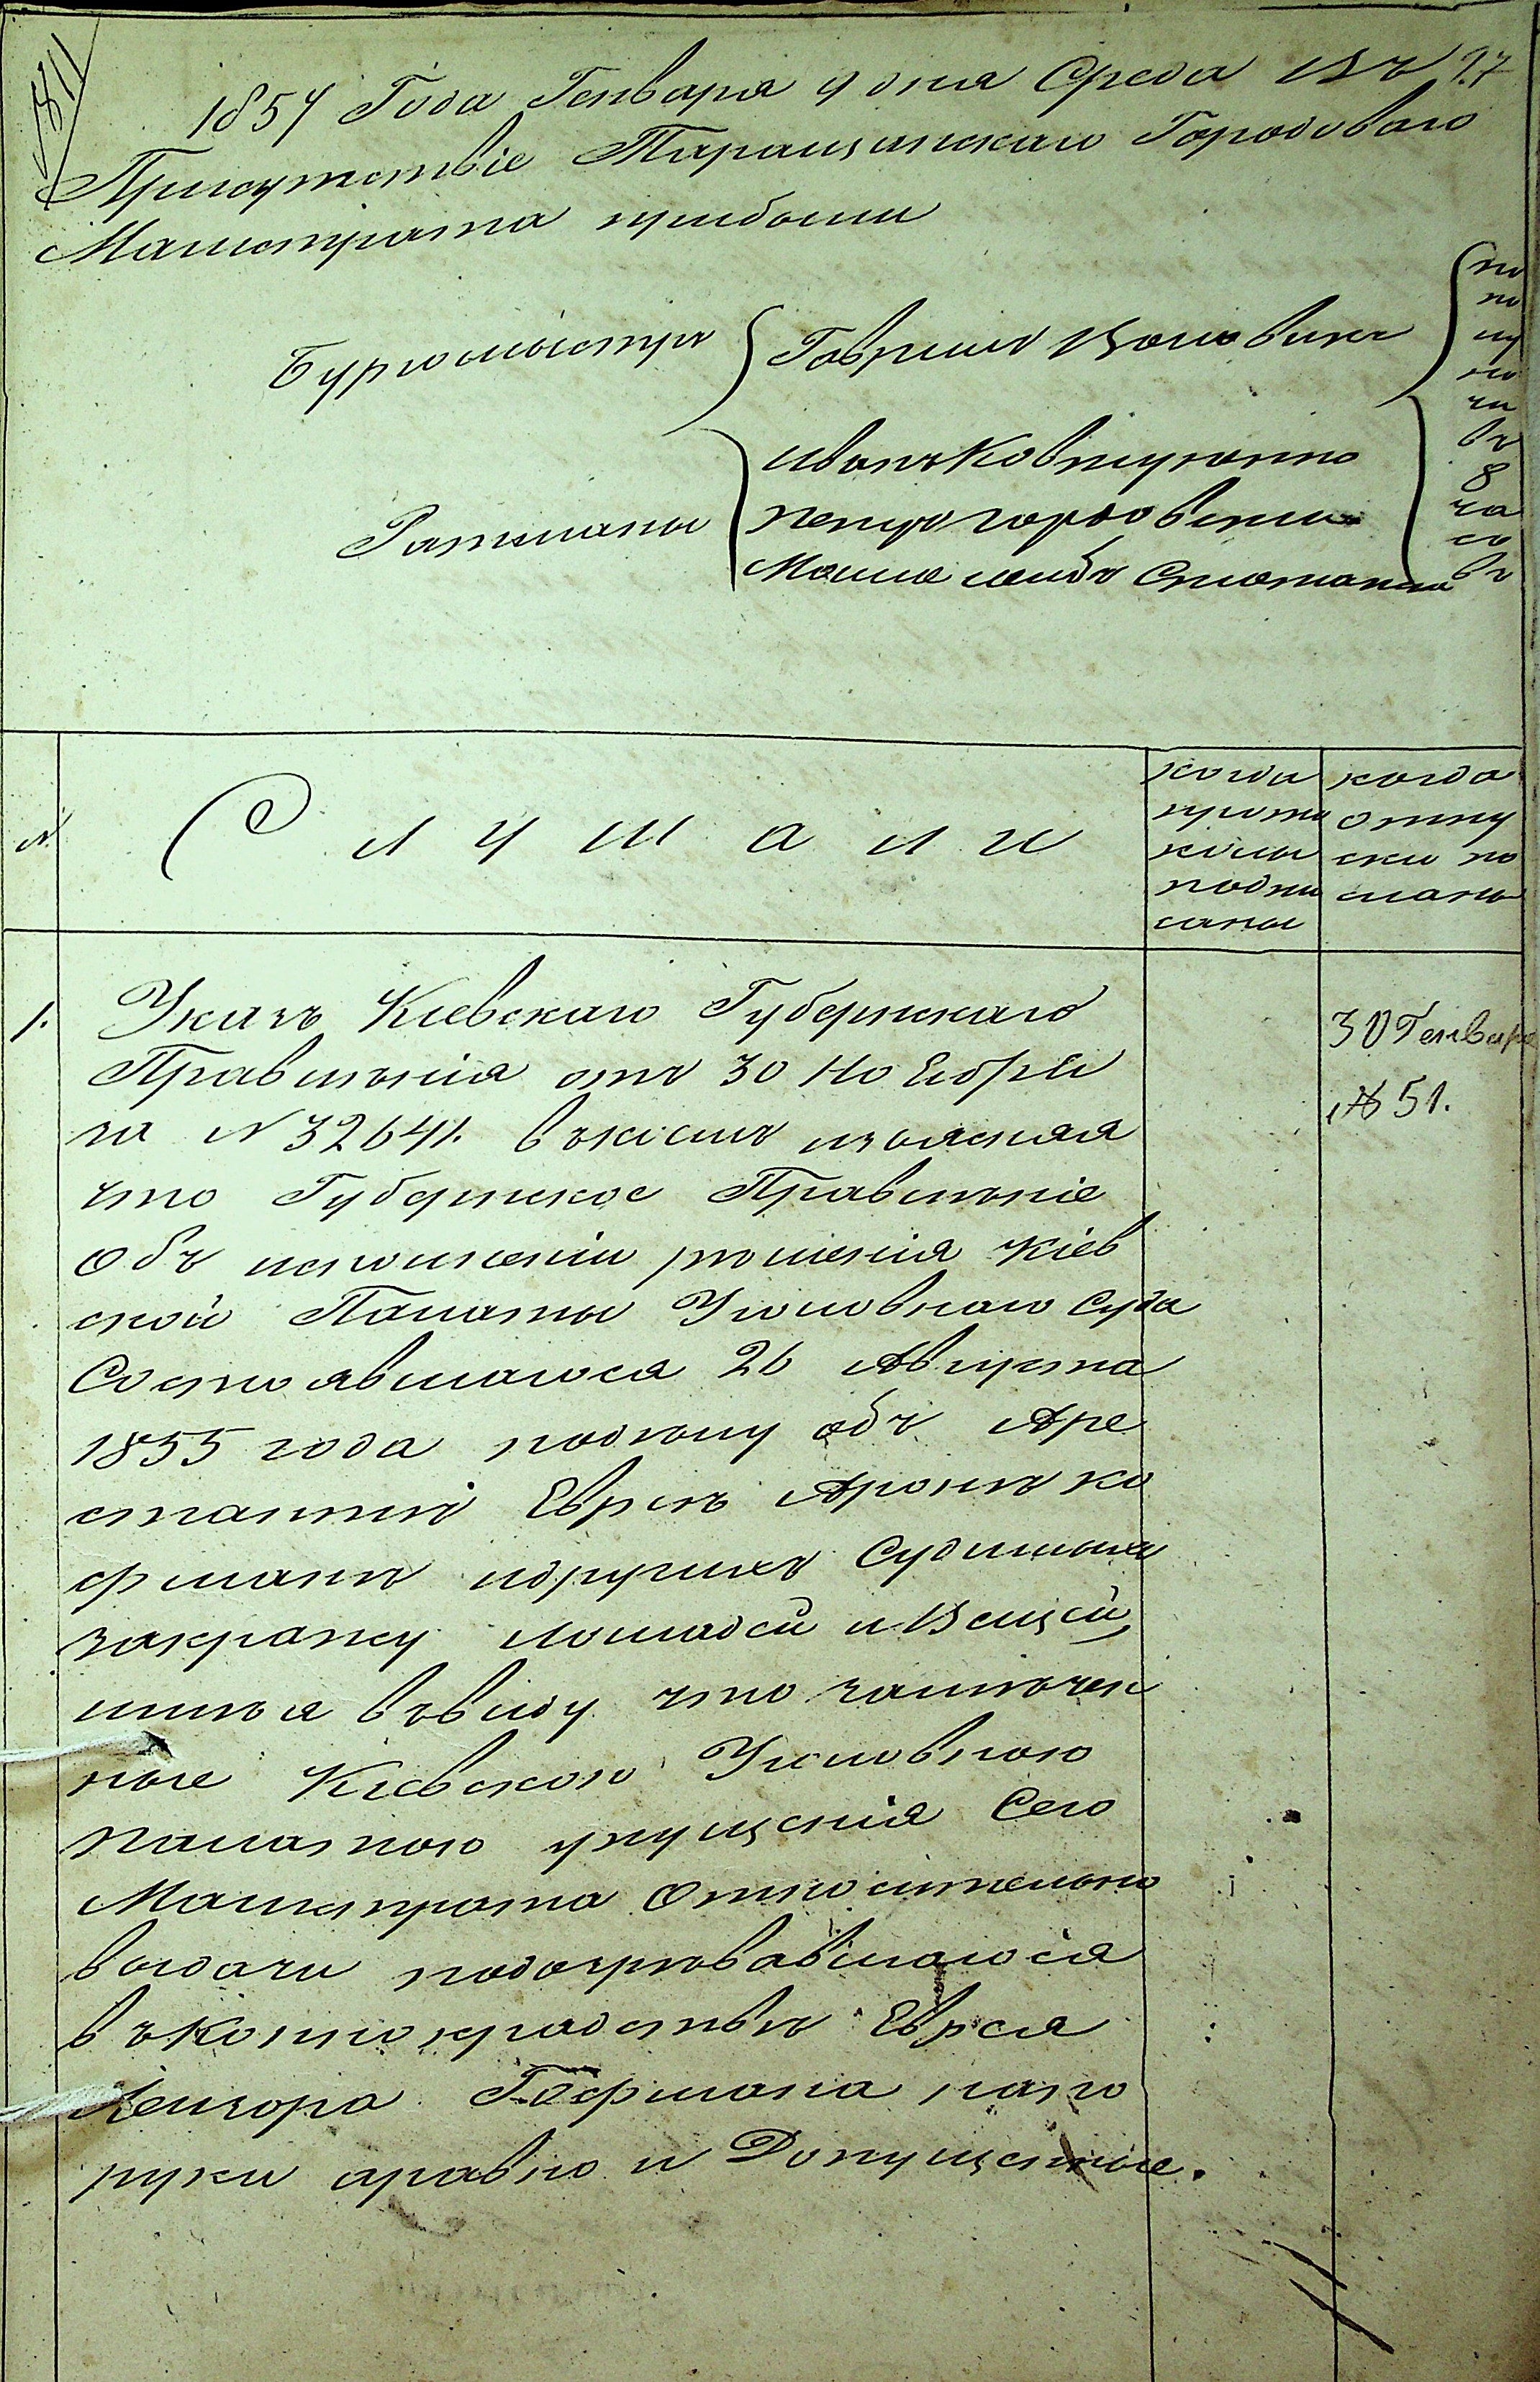 17
1857 Года Генваря 9 дня Среда въ
Присутствіе Таращанскаго Городоваго
Магистрата прибыли
Бургомистръ Гаврило
по
по
лу
но
чи
въ
8
ча
со
въ
Ратманы
иванъ Ковтуненко
петръ
Мошко лейбъ
N.
Слушали
когда
прото
колы
подпи
саны
когда
отпу
ски по
сланы
1.
Указъ Кіевскаго Губернскаго
Правленія отъ 30 Ноября
за N 32641. въ коемъ изъясняя
что Губернское Правленіе
Объ исполненіи рѣшенія Кіев
ской Палаты Уголовнаго Суда
Состоявшагося 26 Августа
1855 года по дѣлу объ Аре
стантѣ Евреѣ Аронѣ Ко
фманѣ и другихъ Судимыхъ
за кражу лошадей и Вещей
имѣя въ виду что замѣчен
ные Кіевскою Уголовною
палатою упущенія Сего
Магистрата Относительно
выдачи подозрѣвавшагося
въ Конокрадствѣ Еврея
Лейзора Гофмана на по
руки а равно и Допущенные.
30 Генваря
№ 51.